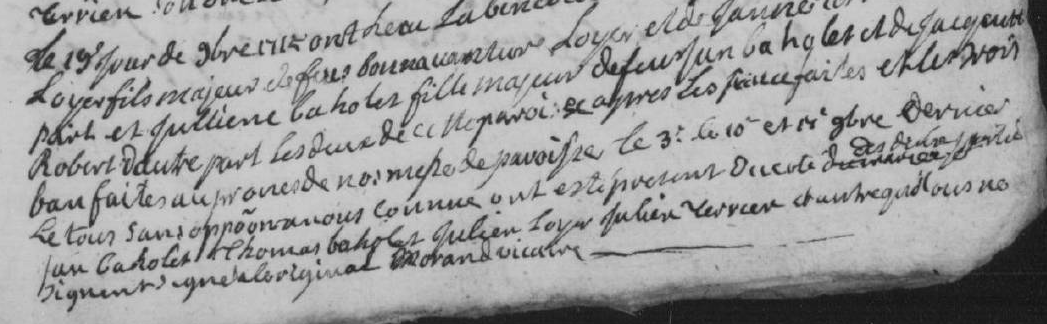 terrien
le 19e jour de 9bre 1715 ont receu la bene
Loyer fils majeur de feus bonnavanture Loyer et de Janne
part et Julliene baholet fille majeur de feus Jan baholet et de Jacquette
Robert dautre part les deux de cette paroi: se apres les fiancefailes et les trois
ban faites au prones de nos messe de paroisse le 3e le 10e et 17e 9bre dernier
Le tous sans oppõon a nous connue ont esté present du coté des deux partie
Jan baholet Thomas baholet Julien Loyer Julien Terrien et autre qui tous ne
signent signé a loriginal Morand vicaire